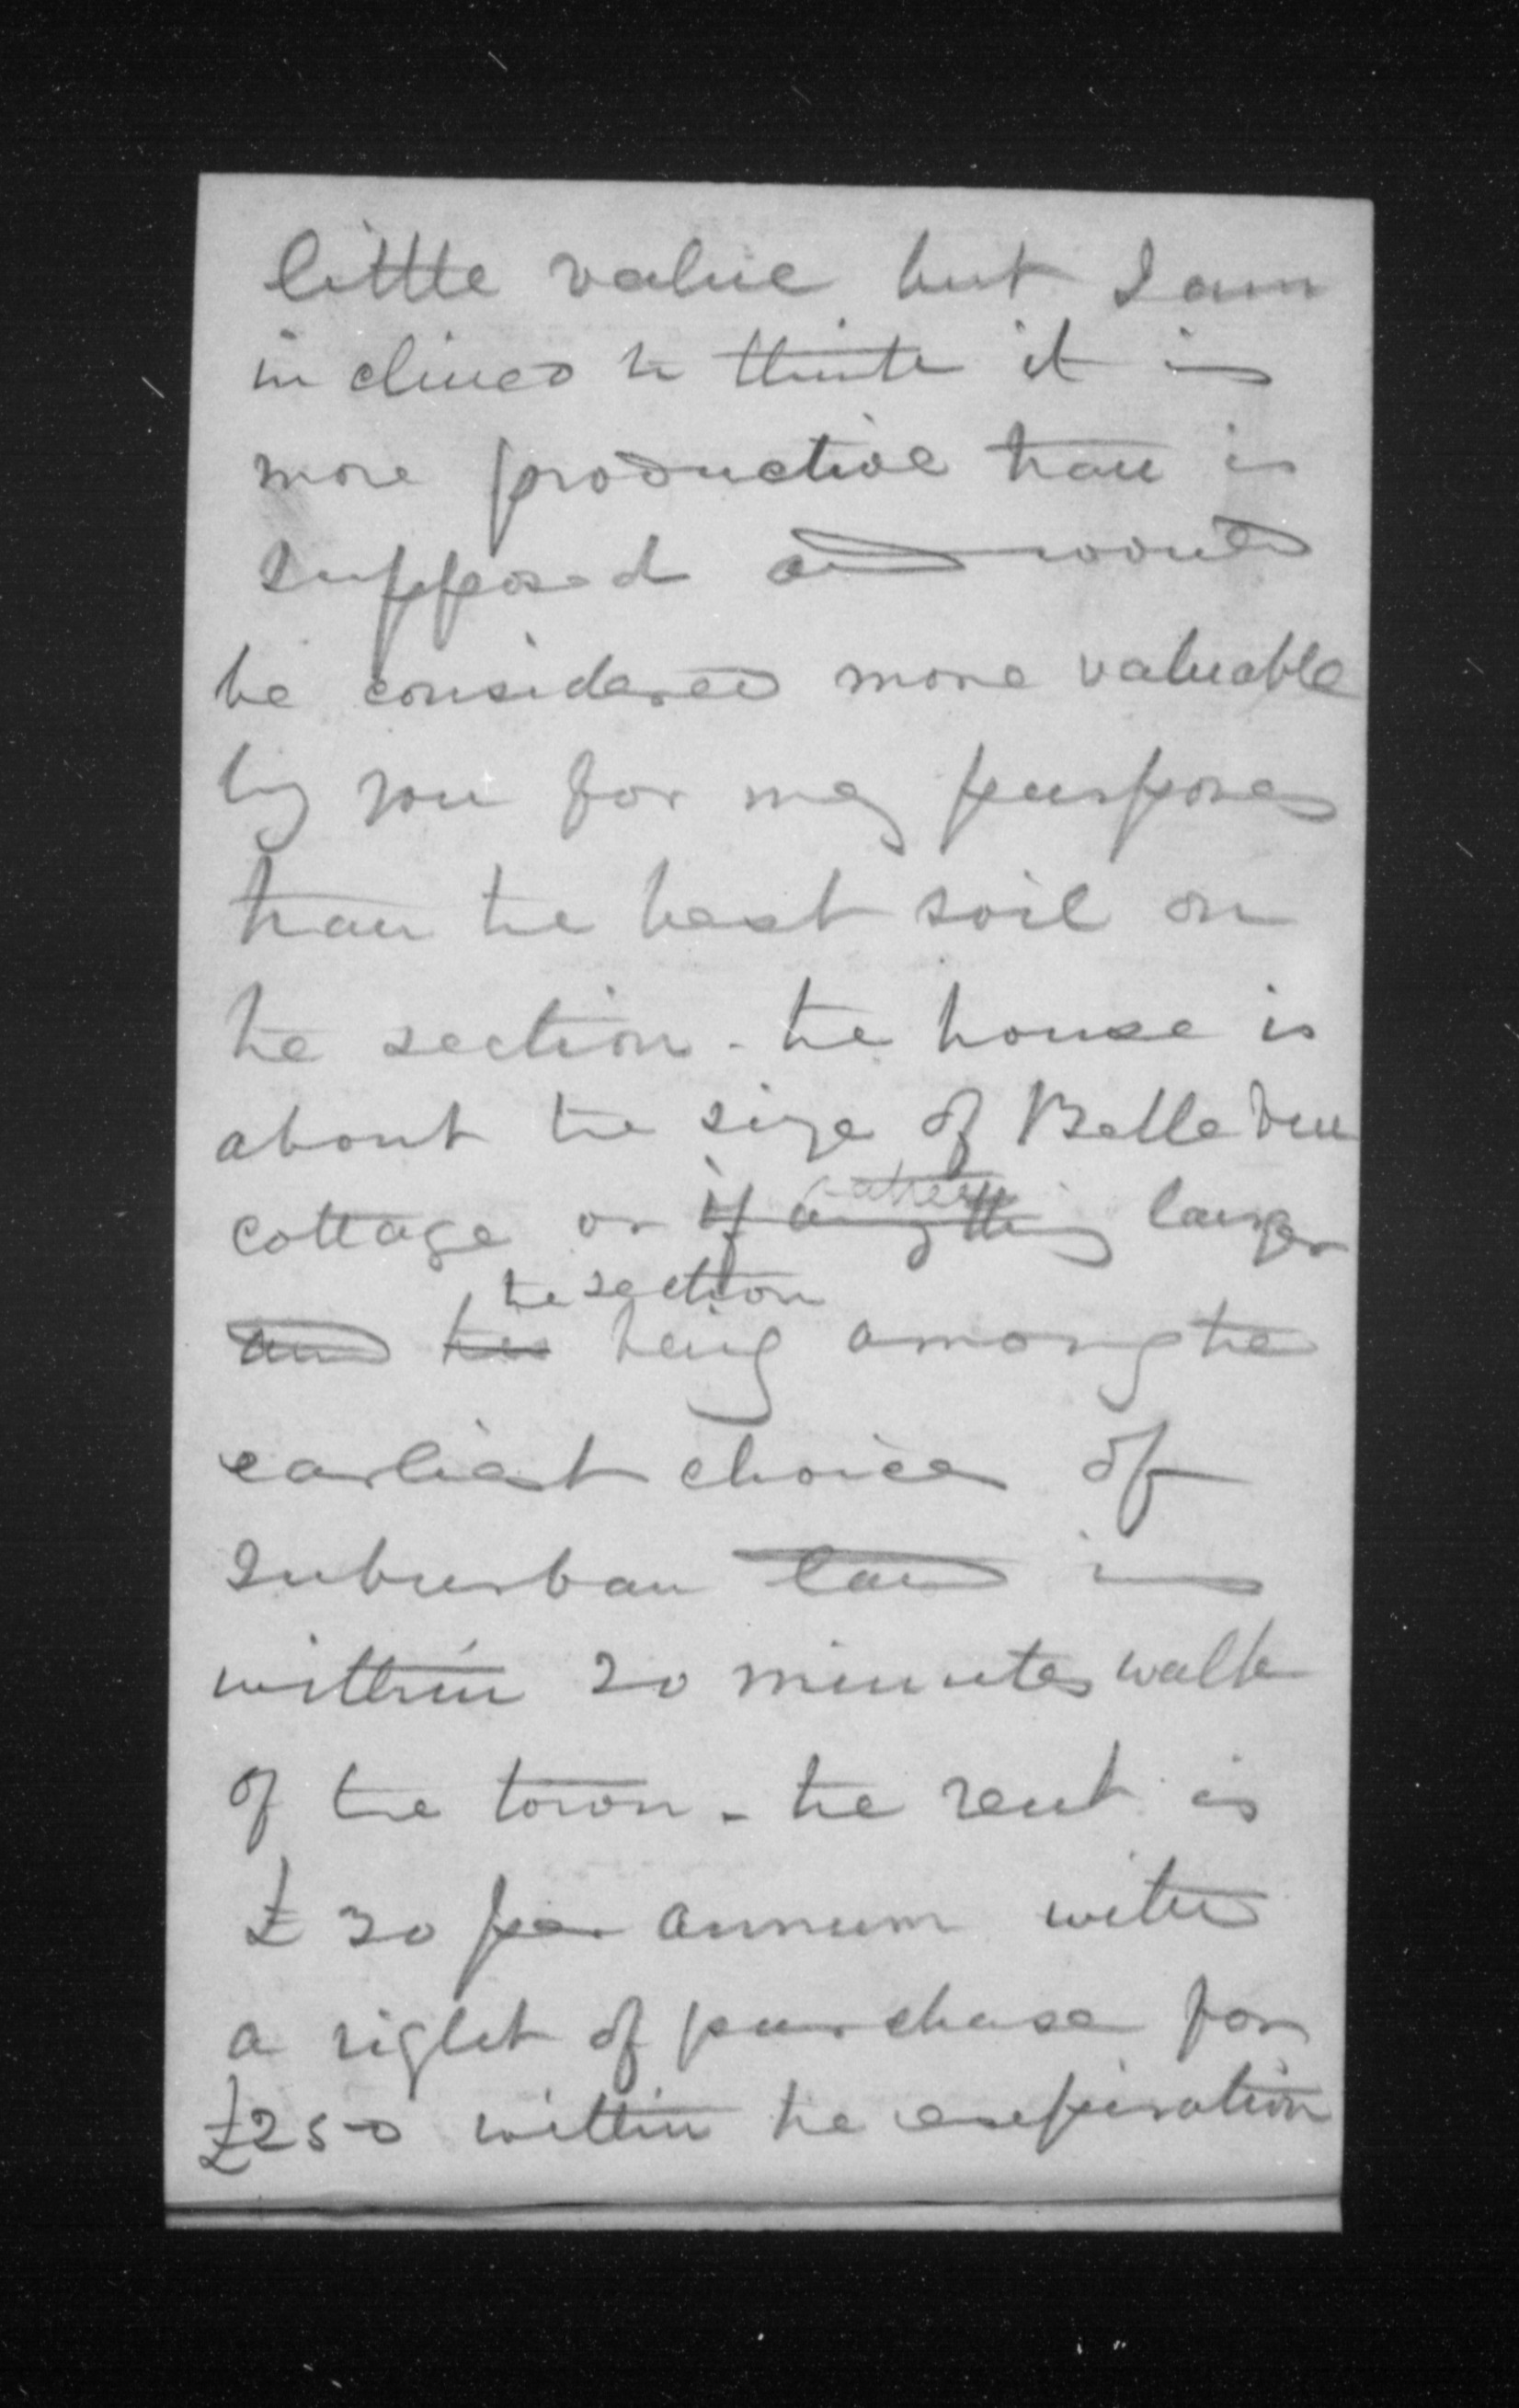 little value but I am
inclined to think it is
more productive than is
supposed and would
be considered more valuable
by you for my purposes
than the best soil on
the section - the house is
about the size of Belle Vue
cottage or if anything rather larger
the section
and the being among the
earliest choices of
suburban land is
within 20 minutes walk
of the town - the rent is
£30 per annum with
a right of purchase for
£250 within the expiration